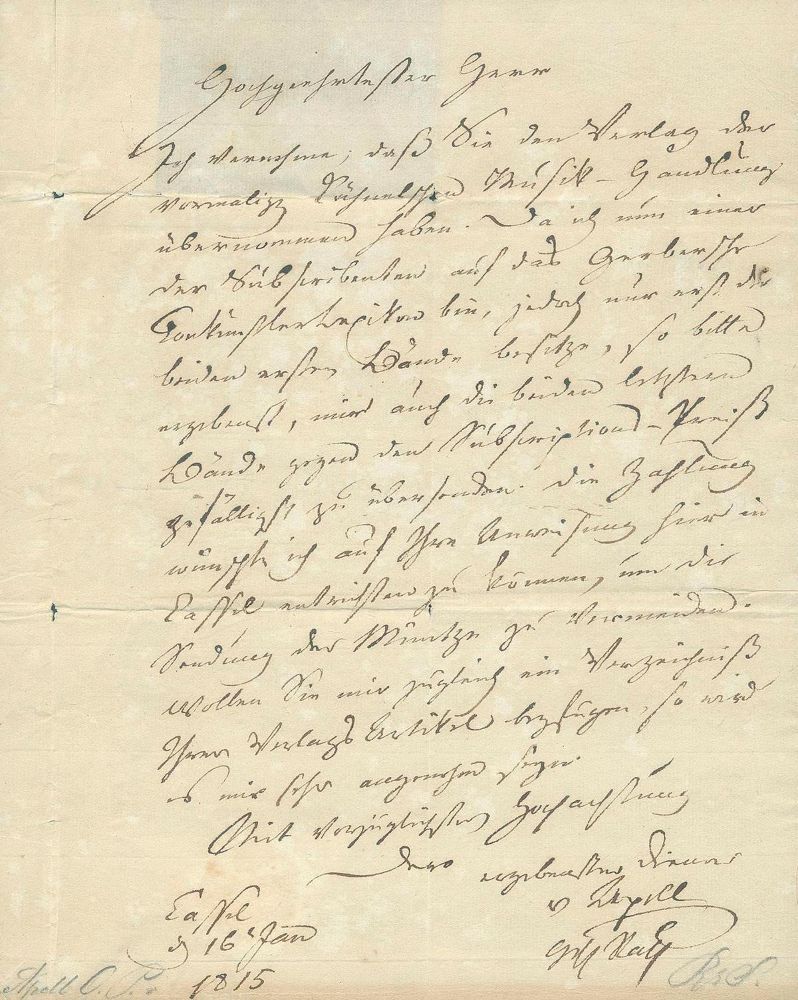 Hochgeehrtester Herr
Ich vernehme, daß Sie den Verlag der
vormalign Kühnelschen Musik-Handlung
übernommen haben. Da ich nun einer
der Subscribenten auf das Gerbersche
Tonkünstlerlexikon bin, jedoch nur erst die
beiden ersten Bände besitze, so bitte
ergebenst, mir auch die beiden letztern
Bände gegen den Subscriptions-Preiß
gefälligst zu übersenden. Die Zahlung
wünschte ich auf Ihre Anweisung hier in
Cassel entrichten zu können, um die
Sendung der Müntze zu vermeiden.
Wollen Sie mir zugleich ein Verzeichniß
Ihrer Verlags Artikel beyfügen, so wird
es mir sehr angenehm seyn.
Mit vorzüglichster Hochachtung
Dero ergebenster Diener
v Apell
Cassel
d 16t Jan
1815
Apell